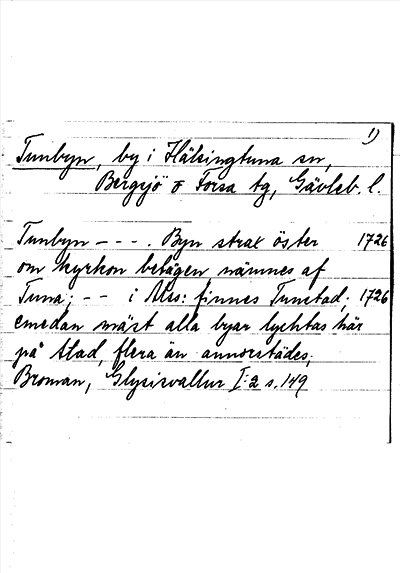 1)
Tunbyn, by i Hälsingtuna sn,
Bergsjö o Forsa tg, Gävleb. l.
Tunbyn - - - . Byn strax öster 1726
om kyrkon belägen nämnes af
Tuna; - - i Mss: finnes Tunstad; 1726
emedan mäst alla byar lychtas här
på stad, flera än annorstädes;
Broman, Glysisvallur I:2 s. 149